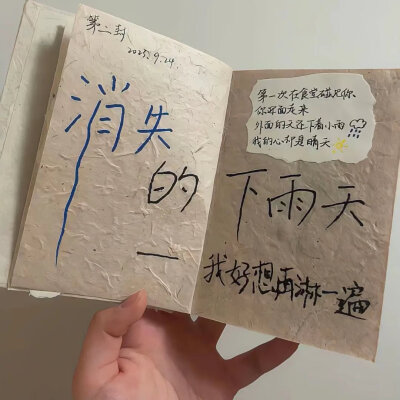 第二封
2025.9.24.
消失
的
一
第一次在食堂碰见你
你迎面走来
外面的天还下着小雨
我的心却是晴天
下雨天
我好想再淋一遍